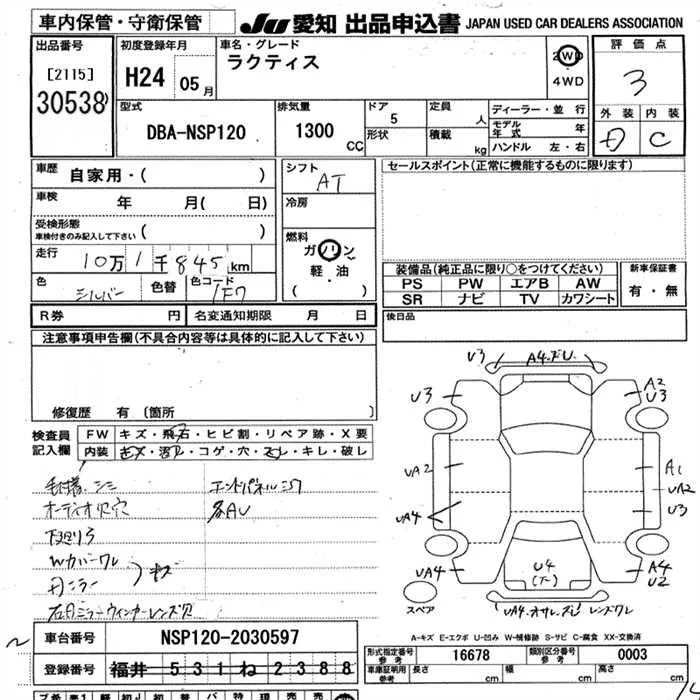 車内保管・守衛保管
JU 愛知 出品申込書 JAPAN USED CAR DEALERS ASSOCIATION
出品番号
[2115]
30538
初度登録年月
H24 05月
車名・グレード
ラクティス
2WD
4WD
評価点
3
外装 内装
C
型式
DBA-NSP120
排気量
1300
CC
ドア
5
形状
定員
人
積載
kg
ディーラー・並行
モデル年式 年
ハンドル 左・右
車歴
自家用・( )
車検
年 月( 日)
受検形態
車検付きのみ記入して下さい ( )
走行
10万1千845km
色
シルバー
色替
色コード
1F7
シフト
AT
冷房
燃料
ガソリン
軽・油
( )
セールスポイント(正常に機能するものに限ります)
装備品(純正品に限り○をつけてください)
PS PW エアB AW
SR ナビ TV カワシート
新車保証書
有・無
後日品
R券 円
名変通知期限 月 日
注意事項申告欄(不具合内容等は具体的に記入して下さい)
修復歴 有〔箇所 〕
検査員
記入欄
FW キズ・飛石・ヒビ割・リペア跡・X要
内装 キズ・汚レ・コゲ・穴・スレ・キレ・破レ
シミ エンドパネルシワ
オーディオ欠穴 各AU
下廻りラ
Wカバーワレ
ミラー キズ
右日ミラーウィンカーレンズ欠
V3
A4.ズレ.U
U3
A2
U3
UA2
A1
UA2
UA4
U3
UA4
U4
(下)
A4
U2
スペア
UA4.オサレ.ズレ レンズワレ
A-キズ E-エクボ U-凹み W-補修跡 S-サビ C-腐食 XX-交換済
車台番号
NSP120-2030597
登録番号
福井 531ね2388
形式指定番号
参考
16678
類別区分番号
参考
0003
車庫証明用
参考
長さ cm
幅 cm
高さ cm